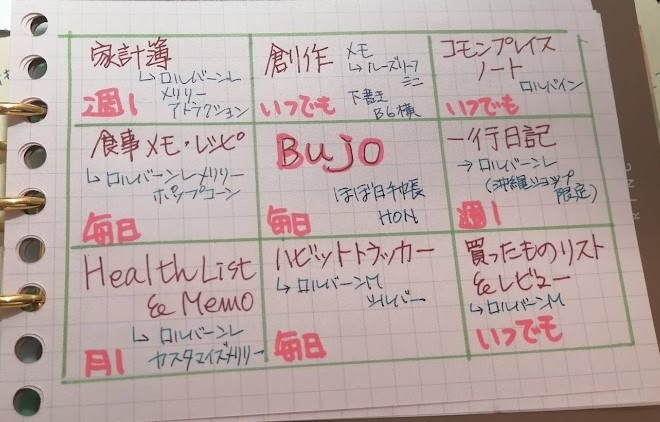 家計簿
↳ロルバーンL
メリリー
アトラクション
週1
創作
メモ
↳ルーズリーフ
ミニ
下書き
B6横
いつでも
コモンプレイス
ノート
ロルバイン
いつでも
食事メモ・レシピ
↳ロルバーンLメリリー
ポップコーン
毎日
Bujo
ほぼ日手帳
HON
毎日
一行日記
→ロルバーンL
(沖縄ショップ
限定)
週1
Health List
& Memo
↳ロルバーンL
カスタマイズメリリー
月1
ハビットトラッカー
↳ロルバーンM
シルバー
毎日
買ったものリスト
&レビュー
↳ロルバーンM
いつでも